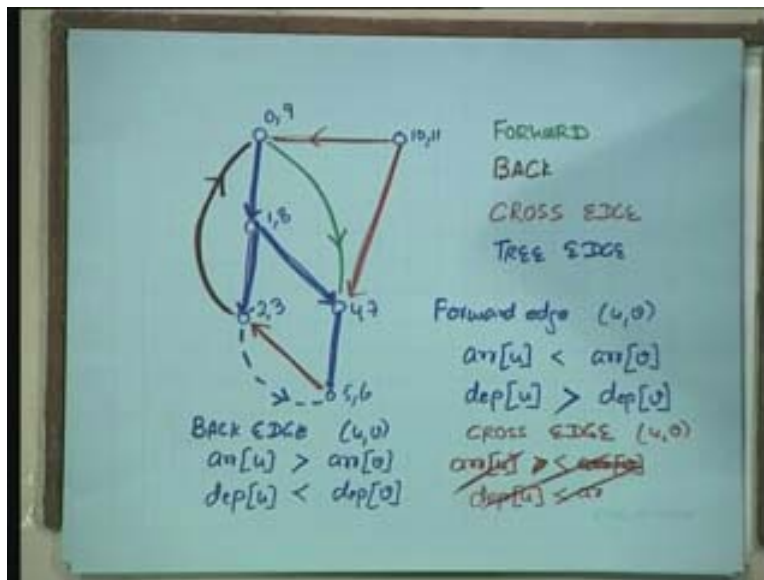 0,9
10,11
1,8
2,3
4,7
5,6
FORWARD
BACK
CROSS EDGE
TREE EDGE
Forward edge (u,v)
arr[u] < arr[v]
dep[u] > dep[v]
BACK EDGE (u,v)
arr[u] > arr[v]
dep[u] < dep[v]
CROSS EDGE (u,v)
arr[u] > < arr[v]
dep[u] < ar